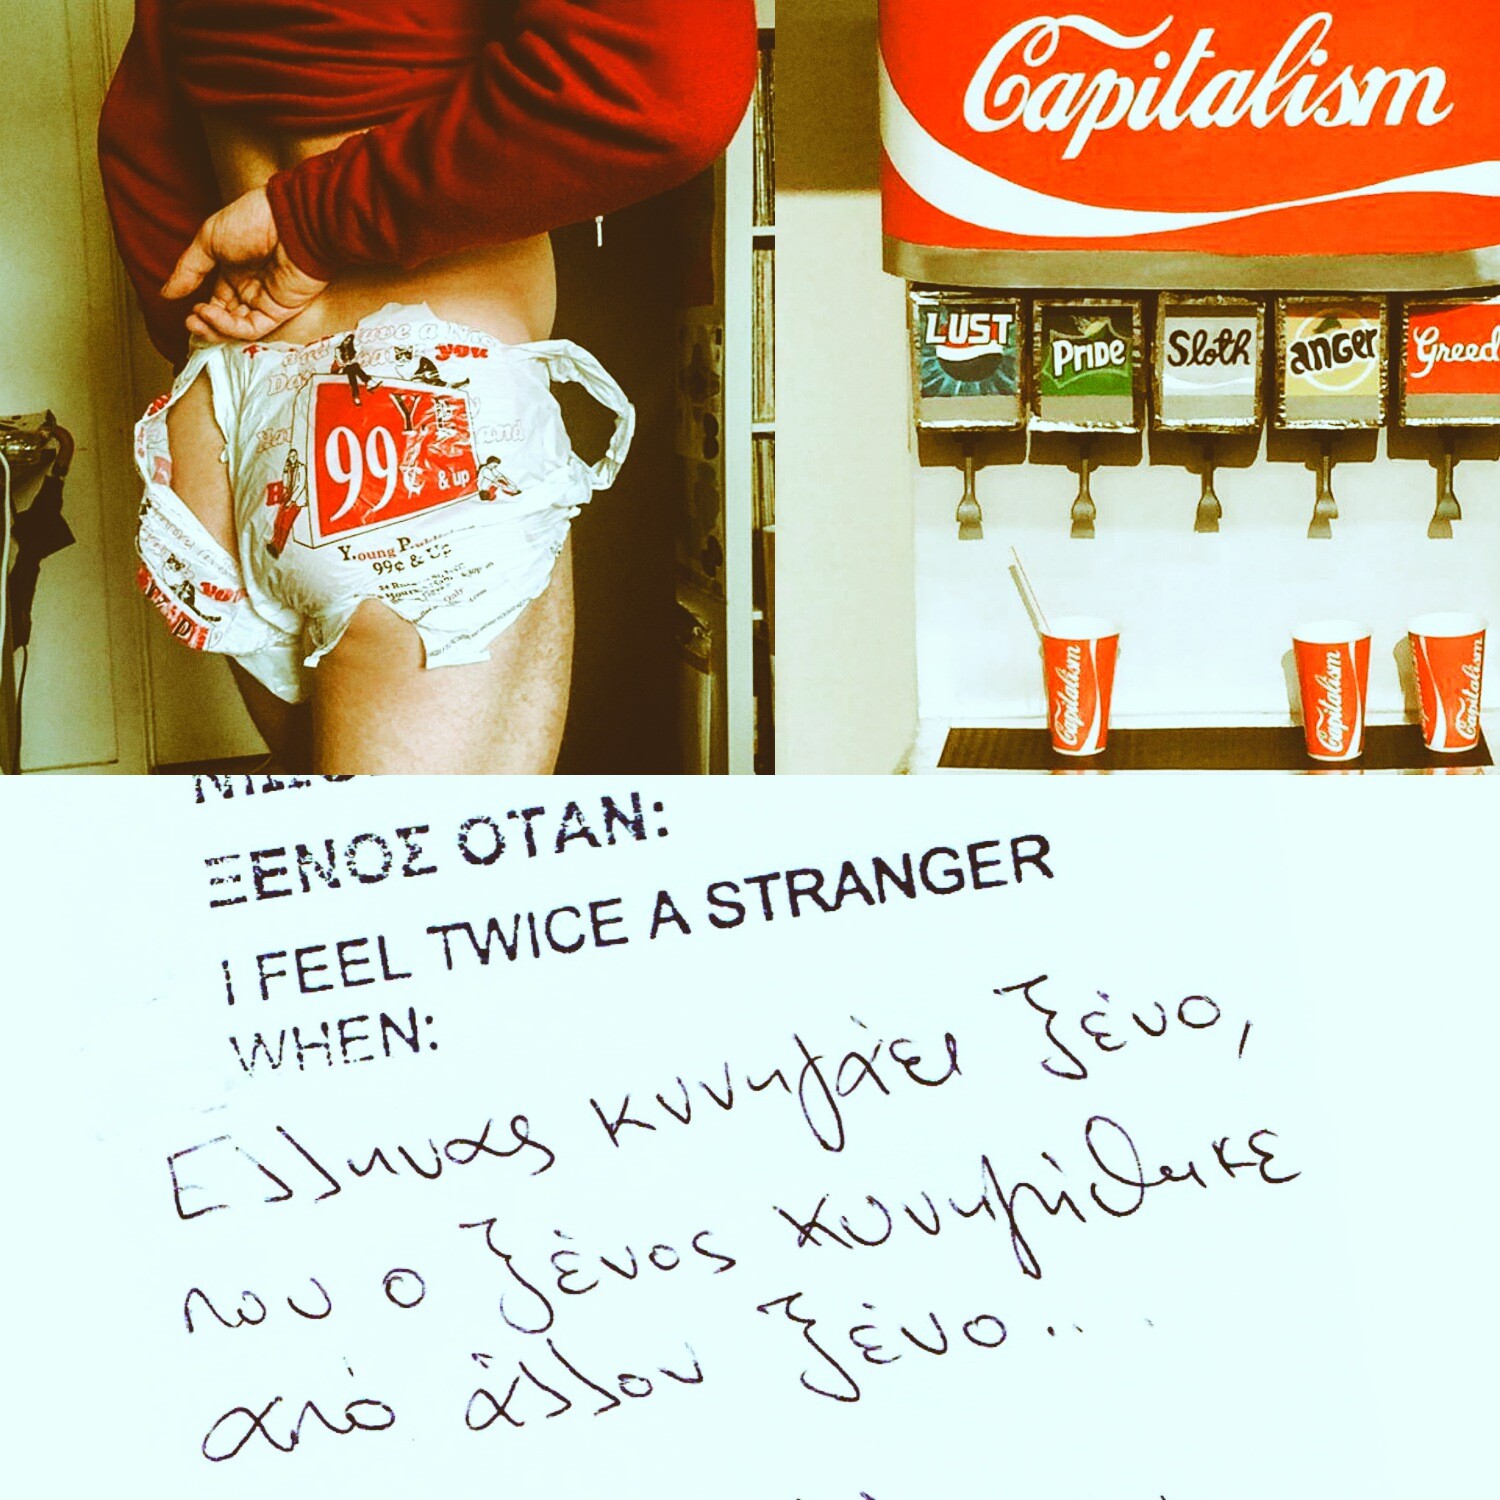 Have a Nice
Day
you
99¢
& up
and
Young
99¢ & Up
Only
Capitalism
LUST
PRIDE
Sloth
anger
Greed
Capitalism
Capitalism
Capitalism
ΞΕΝΟΣ ΟΤΑΝ:
I FEEL TWICE A STRANGER
WHEN:
Ελληνας κυνηγάει ξένο,
που ο ξένος κυνηγήθηκε
από άλλον ξένο...